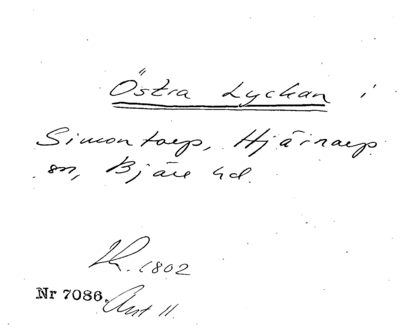 Östra Lyckan i
Simontorp, Hjärnarp
sn, Bjäre hd.
Lk. 1802
Nr 7086. Avst 11.